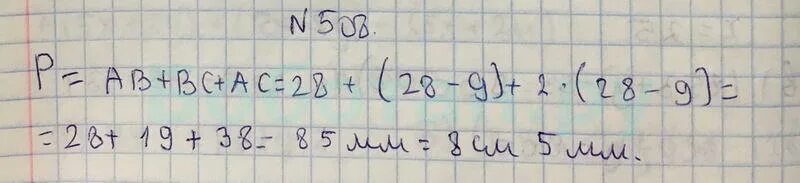 N 508.
P = AB+BC+AC=28 + (28-9)+ 2·(28-9)=
=28+ 19 + 38= 85 мм = 8 см 5 мм.